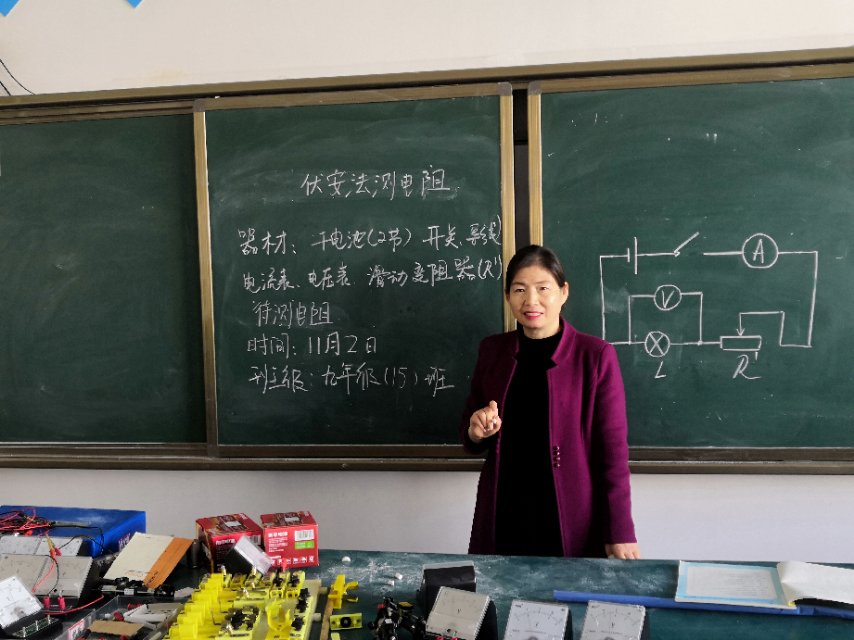 伏安法测电阻
器材：干电池(2节) 开关、导线
电流表、电压表、滑动变阻器(R')
待测电阻
时间：11月2日
班级：九年级(15)班
A
V
L
R'